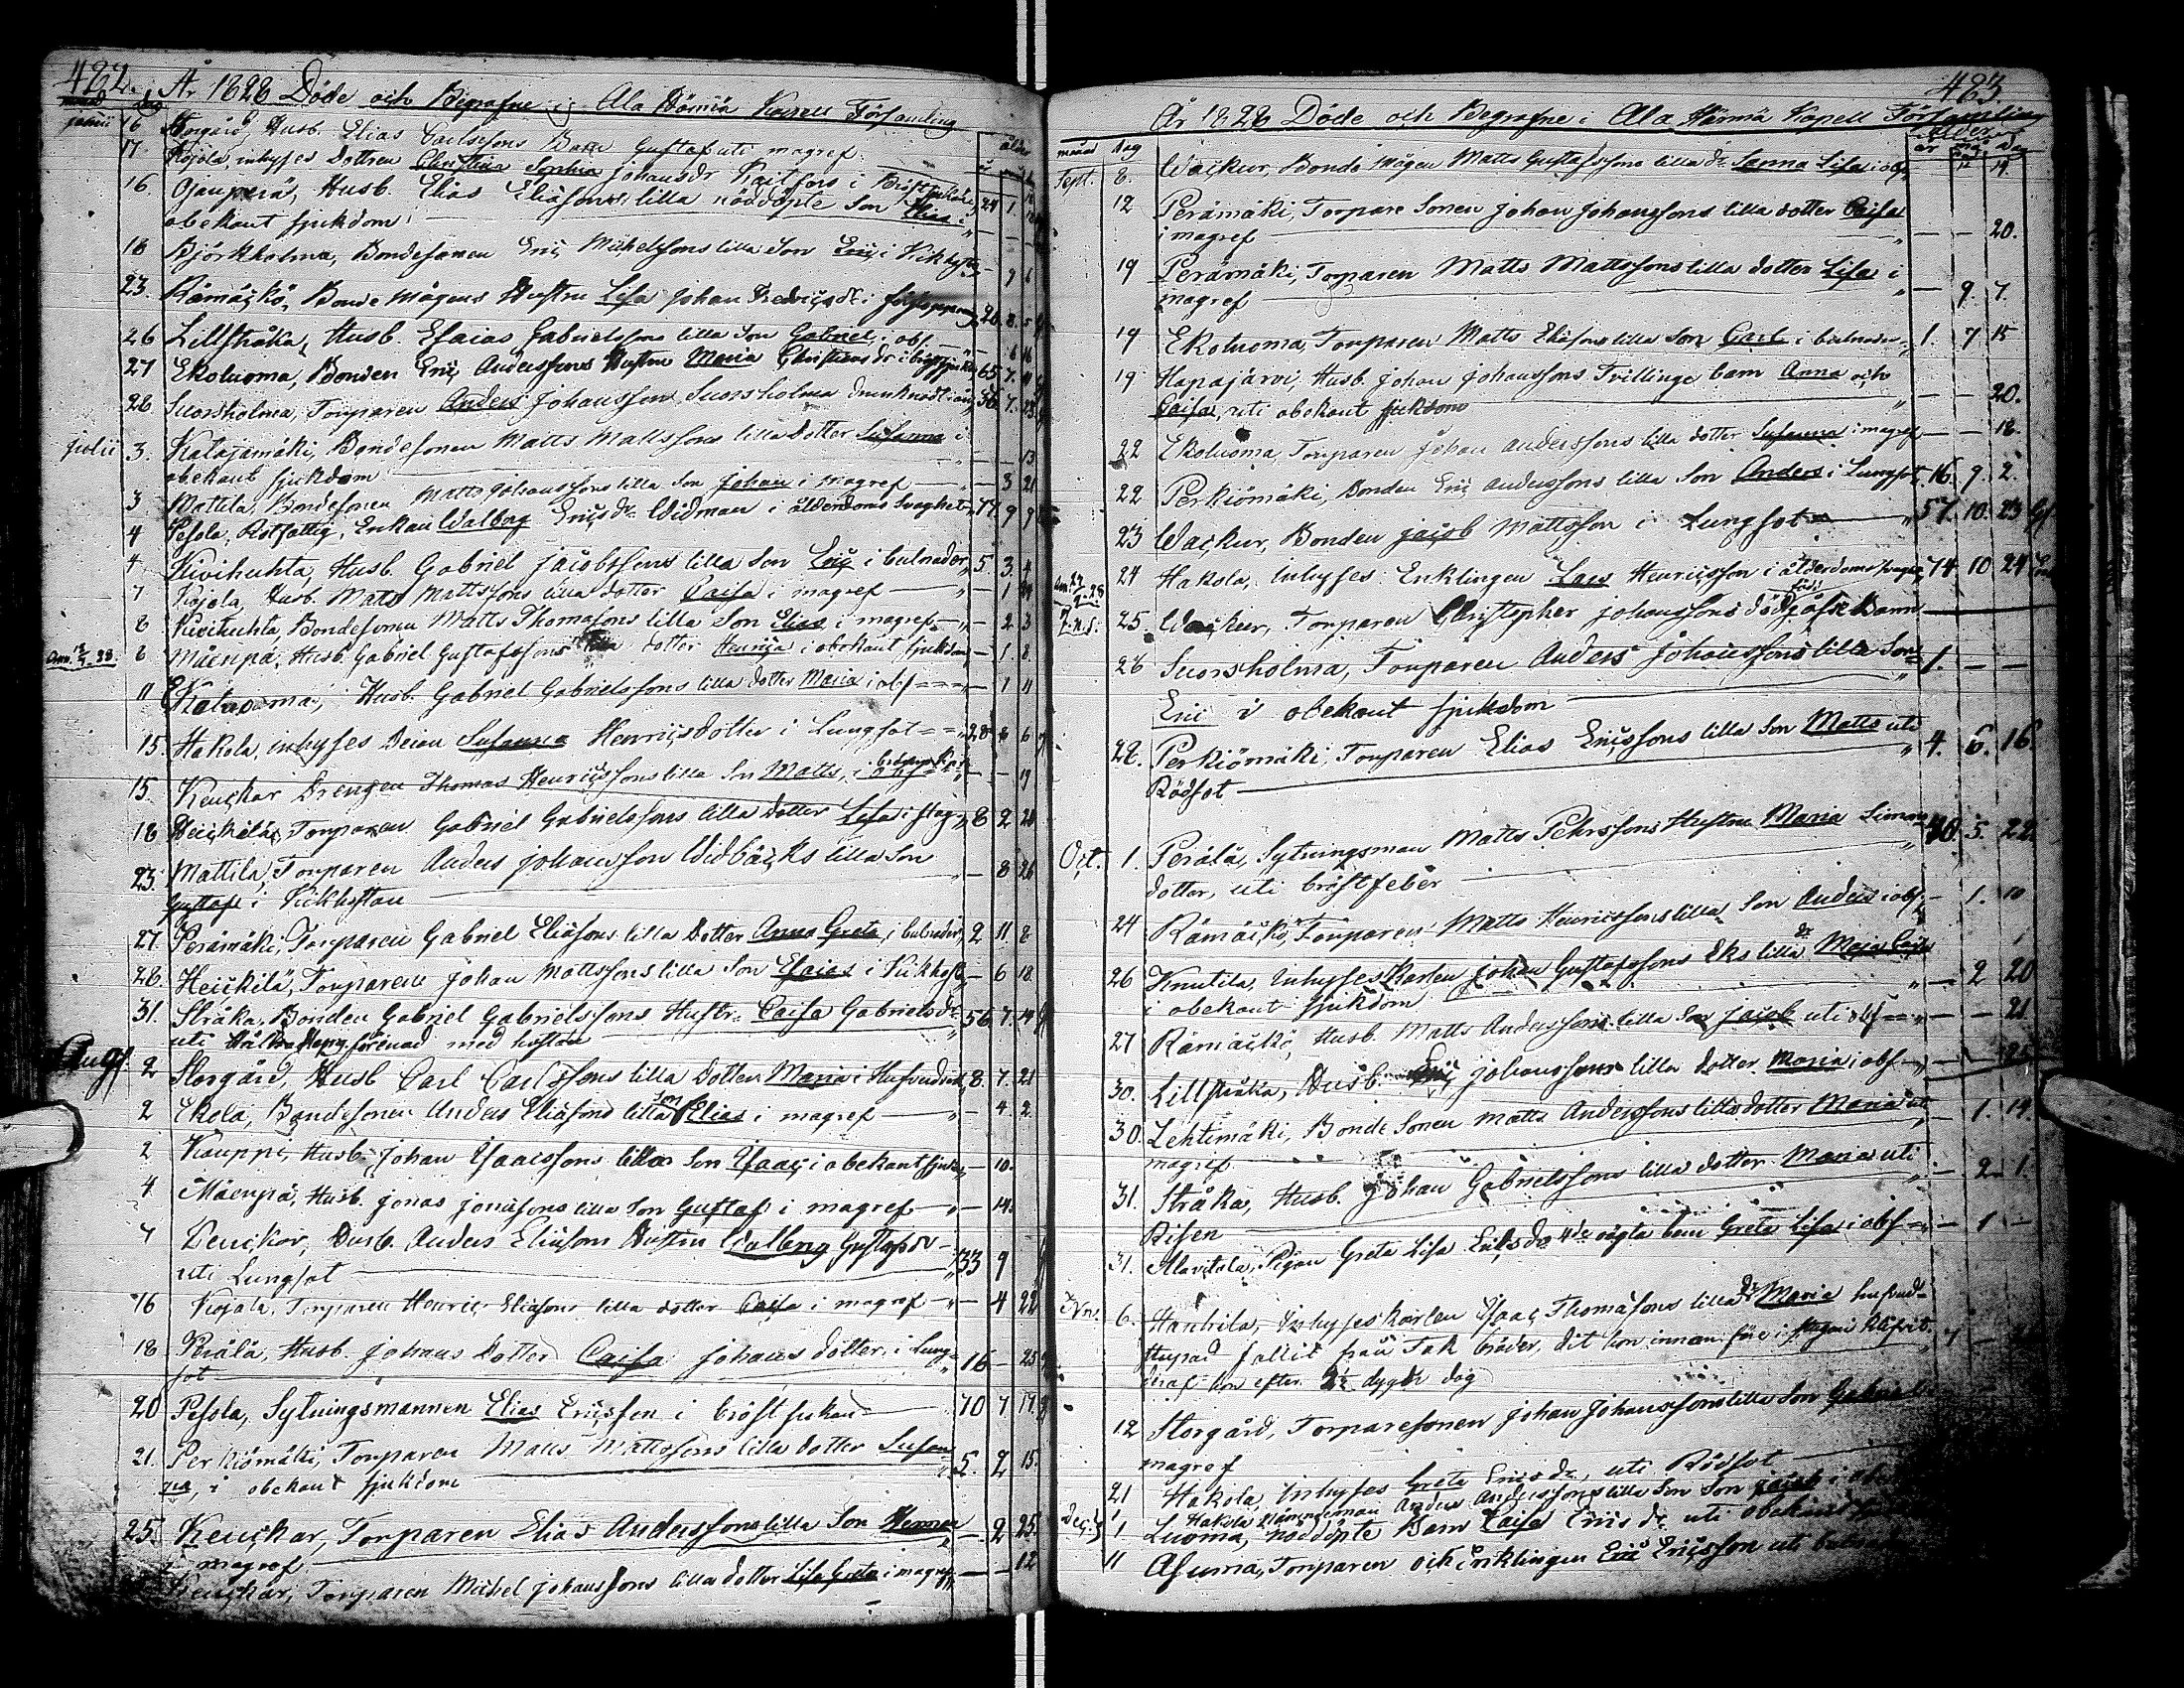 482. År 1828 Döde och Begrafne i Ala Härmä Kapell Församling
månad dag ålder
Junii 16 Storgård, Husb. Elias Carlssons Barn Gustaf uti magref.
17. Kojola, inhyses dottren Christina Sophia Johansdr i
16 Ojanperä, Husb. Elias Eliæsons lilla nöddöpte Son Elias i
obekant sjukdom
18 Björkholma, Bondesonen Eric Michelssons lilla Son Eric i Kikhosta - 9 6
23. Rämäckö, Bonde mågens Hustru Lisa Johan Fredricsdr i 26 8. 5
26 Lillstråka, Husb. Esaias Gabrielssons lilla Son Gabriel, i obs. - 6 16
27 Ekoluoma, Bonden Eric Anderssons Hustru Maria Christiansdr i bröstsjukdom 65 7.
28 Suorsholma, Torparen Anders Johansson Suorsholma drunknad i ån 36 7. 23
Julii 3. Katajamäki, Bondesonen Matts Mattssons lilla Dotter Susanna i
obekant sjukdom - - 13
3 Mattila, Bondesonen Matts Johanssons lilla Son Johan i magref - 3 21
4 Pesola, Rotfattig, Enkan Walborg Ericsdr Widman i ålderdoms svaghet 77 9 9
4 Kivihuhta, Husb. Gabriel Jacobssons lilla Son Eric i bulnader 5. 3. 4
7 Kojola, Husb. Matts Mattssons lilla dotter Caisa i magref - 1
8 Kivihuhta, Bondesonen Matts Thomasons lilla Son Elias i magref - 2 3
8 Mäenpä, Husb. Gabriel Gustafssons lilla dotter Henrica i obekant sjukdom - 1. 8.
11 Ekoluoma, Husb. Gabriel Gabrielssons lilla dotter Maria i obs - 1 11
15. Hakola, inhyses Deian Susanna Henricsdotter i Lungsot 28 6
15. Keuckar Drengen Thomas Henricssons lilla Son Matts, i - - 19
18 Heickilä, Torparen Gabriel Gabrielssons lilla dotter Lisa i slag 8 2 28
23. Mattila, Torparen Anders Johansson Widbäcks lilla Son
Gustaf i Kikhostan - 8 26
27. Perämäki, Torparen Gabriel Eliæsons lilla Dotter Anna Greta, i bulnader 2 11 8
28. Heickilä, Torparen Johan Mattssons lilla Son Esaias i Kikhosta - 6 18
31. Stråka, Bonden Gabriel Gabrielssons Hustr. Caisa Gabrielsdr 56 7. 14
uti förenad med hosta
Aug. 2 Storgård, Husb Carl Carlssons lilla Dotter Maria i Hufvudverk 8. 7. 21
2 Ekola, Bondesonen Anders Eliæsons lilla Son Elias i magref - 4. 2.
2 Kauppi, Husb. Johan Isaacssons lilla Son Isaac i obekant sjukd. - 10.
4 Mäenpä, Husb. Jonas Jonæsons lilla Son Gustaf i magref - 14.
7 Keuckar, Husb. Anders Eliæsons Hustru Walborg Gustafsdr
uti Lungsot 33 9
16 Kojola, Torparen Henric Eliæsons lilla dotter Caisa i magref - 4 22
18 Perälä, Husb. Johans Dotter Caisa Johans dotter, i Lung-
sot 16 - 25
20 Pesola, Sytningsmannen Elias Ericsson i bröstsjukan 70 7 14
21. Perkiömäki, Torparen Matts Mattssons lilla dotter Susan-
na, i obekant sjukdom 5. 2 15.
25. Keuckar, Torparen Elias Anderssons lilla Son Herman
i magref - 2 25.
Keuckar, Torparen Michel Johanssons lilla dotter Lisa Greta i magref - - 12
483.
År 1828 Döde och Begrafne i Ala Härmä Kapell Församling
månad dag Ålder år mån dag
Sept. 8. Wackur, Bonde mågen Matts Gustafssons lilla dr Sanna Lisa i obs. 4.
12 Perämäki, Torpare Sonen Johan Johanssons lilla dotter Caisa
i magref - - 20.
19 Perämäki, Torparen Matts Mattssons lilla dotter Lisa i
magref - 9. 7.
19 Ekoluoma, Torparen Matts Eliæsons lilla Son Carl i bulnader 1. 7 15
19 Hapajärvi, Husb. Johan Johanssons Tvillinge barn Anna och
Caisa, uti obekant sjukdom - - 20.
22 Ekoluoma, Torparen Johan Anderssons lilla dotter Susanna i magref - - 18.
22 Perkiömäki, Bonden Eric Anderssons lilla Son Anders i Lungsot 16. 9. 2.
23 Wackur, Bonden Jacob Mattsson i Lungsot 57. 10. 23
24 Hakola, Inhyses Enklingen Lars Henricsson i ålderdoms svaghet 74 10 24
25 Wackur, Torparen Christopher Johanssons dödfödt Barn
26 Suorsholma, Torparen Anders Johanssons lilla Son 1. - -
Eric i obekant sjukdom
28. Perkiömäki, Torparen Elias Ericssons lilla Son Matts uti
Rödsot 4. 6. 16.
Oct. 1. Perälä, Sytningsman Matts Pehrssons Hustru Maria Simons
dotter, uti bröstfeber 5. 22.
24 Rämäckö, Torparen Matts Henricssons lilla Son Anders i obs. - 1. 10
26 Knutila, Inhyses Karlen Johan Gustafssons Eks lilla dr Maja Caisa
i obekant sjukdom - 2 20
27 Rämäckö, Husb. Matts Anderssons lilla Son Jacob uti obs - - 21
30. Lillstråka, Husb. Eric Johanssons lilla dotter Maria i obs
30. Lehtimäki, Bonde Sonen Matts Anderssons lilla dotter Maria uti
magref. - 1. 14.
31. Stråka, Husb. Johan Gabrielssons lilla dotter Maria uti
Risen - 2 1.
31. Alavitala, Pigan Greta Lisa Ericsdrs oägta barn Greta Lisa i obs - 1 -
Nov. 6. Hanhila, Inhyses karlen Isaac Thomæsons lilla dr Maria hufvud-
stupad fallit från Tak bräder, dit hon innan före i
deraf hon efter 2½ dygn dog
12 Storgård, Torparesonen Johan Johanssons lilla Son
magref
21 Hakola, Inhyses Greta Ericsdr, uti Rödsot
1 Hakola Nämndeman Anders Anderssons lilla Son Son Jacob i
Dec. 1 Luoma, nöddöpte Barn Caisa Ericsdr uti obekant
11 Asuma, Torparen och Enklingen Eric Ericsson uti